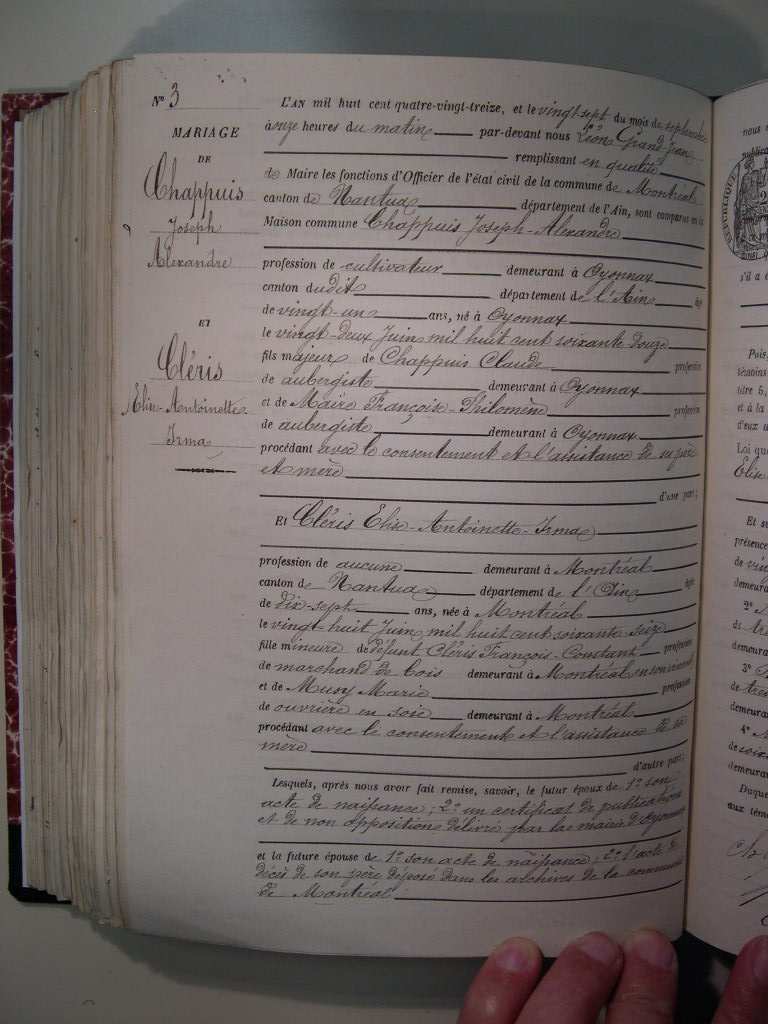 N° 3
MARIAGE
DE
Chappuis
Joseph
Alexandre
ET
Cléris
Elise-Antoinette
Irma
L'AN mil huit cent quatre-vingt-treize, et le vingt-sept du mois de septembre
à onze heures du matin par-devant nous Léon Grandjean
remplissant en qualité
de Maire les fonctions d'Officier de l'état civil de la commune de Montréal
canton de Nantua département de l'Ain, sont comparus en la
Maison commune Chappuis Joseph-Alexandre
profession de cultivateur demeurant à Oyonnax
canton dudit département de l'Ain âgé
de vingt-un ans, né à Oyonnax
le vingt-deux Juin mil huit cent soixante douze
fils majeur de Chappuis Claude profession
de aubergiste demeurant à Oyonnax
et de Maire Françoise-Philomène profession
de aubergiste demeurant à Oyonnax
procédant avec le consentement et l'assistance de ses père
et mère
d'une part;
Et Cléris Elise-Antoinette-Irma
profession de aucune demeurant à Montréal
canton de Nantua département de l'Ain âgée
de dix-sept ans, née à Montréal
le vingt-huit Juin mil huit cent soixante-seize
fille mineure de défunt Cléris François-Constant profession
de marchand de bois demeurant à Montréal en son vivant
et de Musy Marie profession
de ouvrière en soie demeurant à Montréal
procédant avec le consentement et l'assistance de sa
mère
d'autre part;
Lesquels, après nous avoir fait remise, savoir, le futur époux de 1° son
acte de naissance; 2° un certificat de publication
et de non opposition délivré par la mairie d'Oyonnax
et la future épouse de 1° son acte de naissance; 2° l'acte de
décès de son père déposé dans les archives de la commune
de Montréal
nous
publica
RÉPUBLIQUE
s'il a é
Puis,
témoins
titre 5,
et à la
d'eux
Loi que
Elise
Et su
présence
de vin
demeura
2°
de
demeura
3°
de tren
demeura
4°
de soix
demeura
Duque
aux tém